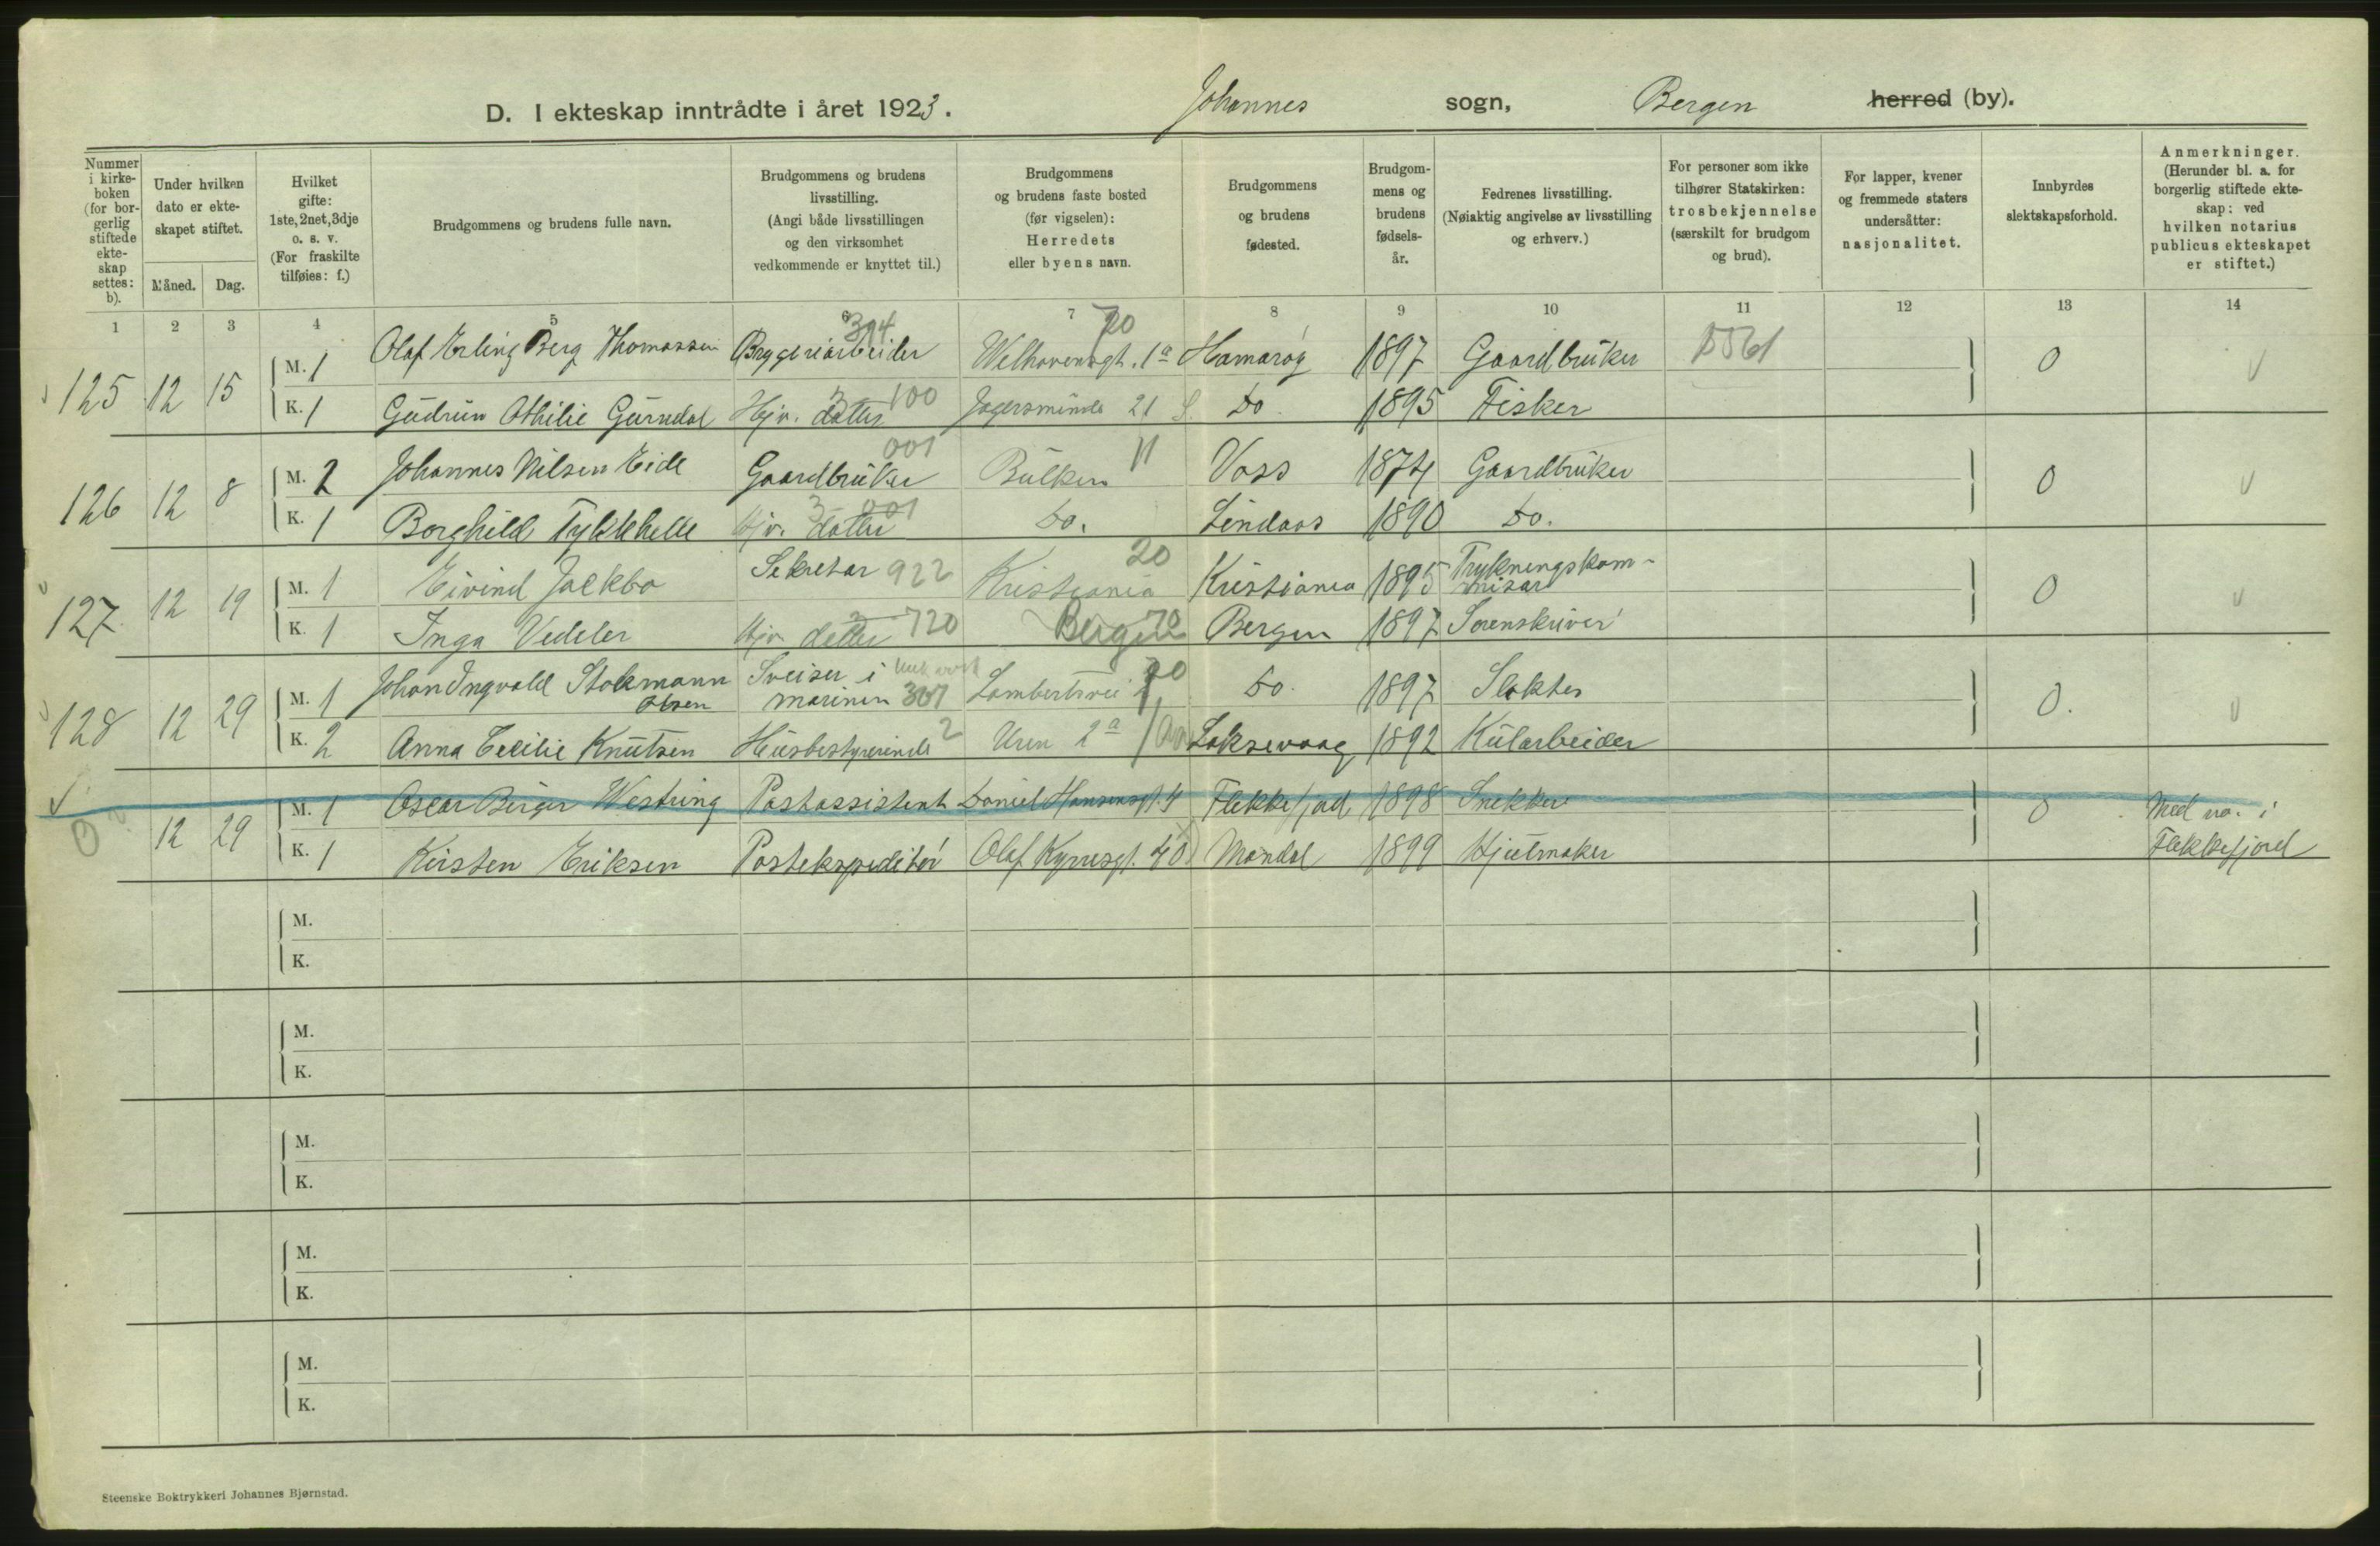 D. I ekteskap inntrådte i året 1923. Johannes sogn, Bergen herred (by).
Nummer i kirke-boken (for bor-gerlig stiftede ekte-skap settes: b).
Under hvilken dato er ekte-skapet stiftet.
Måned. Dag.
Hvilket gifte: 1ste, 2net, 3dje o. s. v. (For fraskilte tilføies: f.)
Brudgommens og brudens fulle navn.
Brudgommens og brudens livsstilling. (Angi både livsstillingen og den virksomhet vedkommende er knyttet til.)
Brudgommens og brudens faste bosted (før vigselen): Herredets eller byens navn.
Brudgommens og brudens fødested.
Brudgom-mens og brudens fødsels-år.
Fedrenes livsstilling. (Nøiaktig angivelse av livsstilling og erhverv.)
For personer som ikke tilhører Statskirken: trosbekjennelse (særskilt for brudgom og brud).
For lapper, kvener og fremmede staters undersåtter: nasjonalitet.
Innbyrdes slektskapsforhold.
Anmerkninger. (Herunder bl. a. for borgerlig stiftede ekte-skap: ved hvilken notarius publicus ekteskapet er stiftet.)
1 2 3 4 5 6 7 8 9 10 11 12 13 14
394 70
125 12 15 M. 1 Olaf Erling Berg Thomassen Bryggeriarbeider Welhavensgt. 1a Hamarøy 1897 Gaardbruker 0
K. 1 Gudrun Othilie Hjv. datter 100 21 Do. 1895 Fisker
001 11
126 12 8 M. 2 Johannes Nilsen Eide Gaardbruker Bulken Voss 1874 Gaardbruker 0
K. 1 Borghild Hjv. datter 001 Do. Lindaas 1890 Do.
20
127 12 19 M. 1 Eivind Jackbo Sekretær 922 Kristiania Kristiania 1895 Trykningskom-
misær 0
K. 1 Inga Vedeler Hjv. datter 720 Bergen 70 Bergen 1897 Sorenskriver
128 12 29 M. 1 Johan Ingvald Stokmann Sveiser i Lambertsvei Do. 1897 Slakter 0.
Olsen marinen 307
K. 2 Anna Cecilie Knutsen Husbestyrerinde 2 Uren 2a Laksevaag 1892 Kularbeider
12 29 M. 1 Oscar Birger Westring Postassistent Daniel Hansensgt. 4 Flekkefjord 1898 Snekker 0 Med no. i
K. 1 Kirsten Eriksen Postekspeditør Olaf Kyrresgt. 40 Mandal 1899 Hjulmaker Flekkefjord
M.
K.
M.
K.
M.
K.
M.
K.
M.
K.
Steenske Boktrykkeri Johannes Bjørnstad.